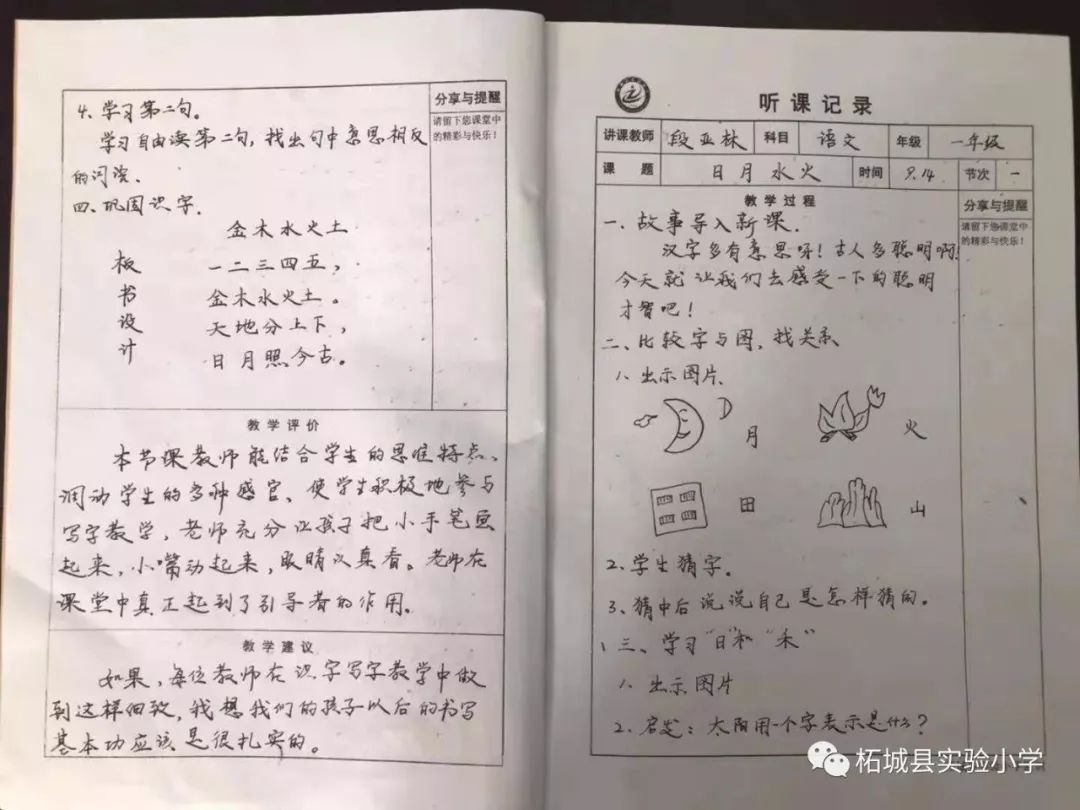 4.学习第二句。
学习自由读第二句,找出句中意思相反
的词语.
四、巩固识字.
金木水火土
板书设计
一二三四五,
金木水火土。
天地分上下,
日月照今古。
分享与提醒
请留下您课堂中
的精彩与快乐!
教学评价
本节课教师能结合学生的思维特点、
调动学生的多种感官、使学生积极地参与
写字教学,老师充分让孩子把小手笔画
起来,小嘴动起来,眼睛认真看。老师在
课堂中真正起到了引导者的作用.
教学建议
如果,每位教师在识字写字教学中做
到这样细致,我想我们的孩子以后的书写
基本功应该是很扎实的。
听课记录
讲课教师 段亚林 科目 语文 年级 一年级
课题 日月水火 时间 9.14 节次 一
教学过程
分享与提醒
请留下您课堂中
的精彩与快乐!
一.故事导入新课.
汉字多有意思呀!古人多聪明啊!
今天就让我们去感受一下的聪明
才智吧!
二、比较字与图,找关系
1、出示图片.
月 火
田 山
2、学生猜字。
3、猜中后说说自己是怎样猜的。
三、学习“日”和“禾”
1、出示图片
2.启发:太阳用一个字表示是什么?
柘城县实验小学